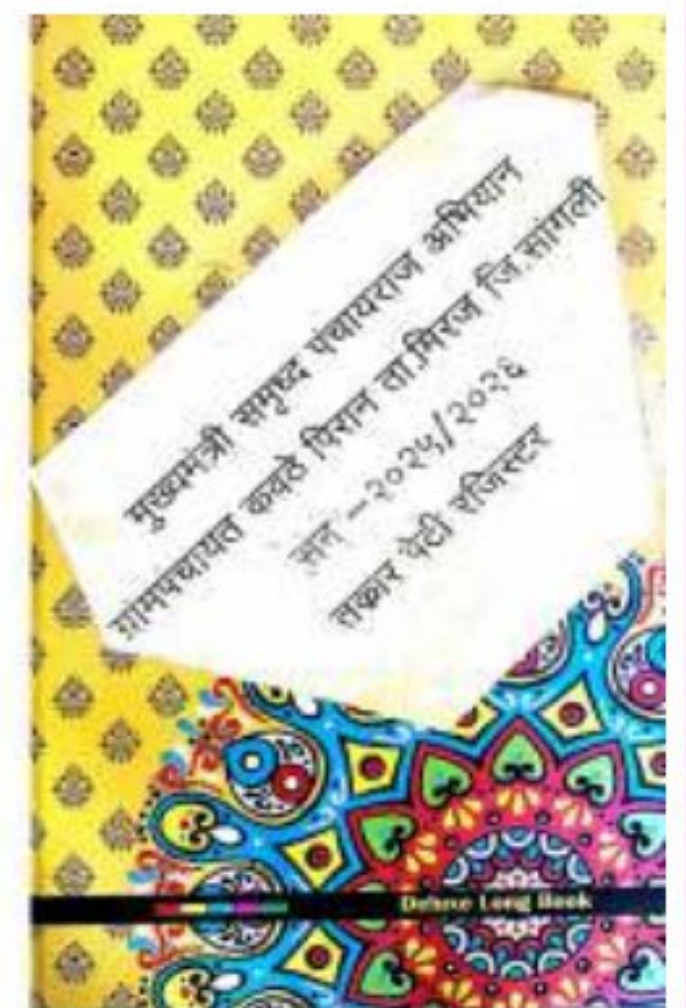 मुख्यमंत्री समृध्द पंचायराज अभियान
ग्रामपंचायत कवठे पिरान ता.मिरज जि.सांगली
सन -२०२५/२०२६
तक्रार पेटी रजिस्टर
Deluxe Long Book